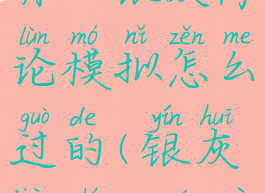 lùn mó nǐ zěn me
论模拟怎么
guò de yín huī
过的(银灰